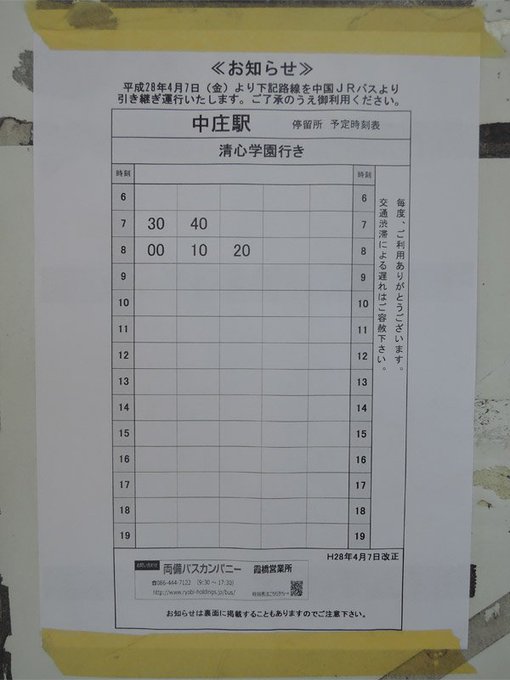 ≪お知らせ≫
平成28年4月7日（金）より下記路線を中国ＪＲバスより
引き継ぎ運行いたします。ご了承のうえ御利用ください。
中庄駅 停留所 予定時刻表
清心学園行き
時刻 時刻
6 6
7 30 40 7
8 00 10 20 8
9 9
10 10
11 11
12 12
13 13
14 14
15 15
16 16
17 17
18 18
19 19
毎度、ご利用ありがとうございます。
交通渋滞による遅れはご容赦下さい。
H28年4月7日改正
お問い合わせ 両備バスカンパニー 霞橋営業所
☎086-444-7122 （9:30～17:30）
http://www.ryobi-holdings.jp/bus/
お知らせは裏面に掲載することもありますのでご注意下さい。